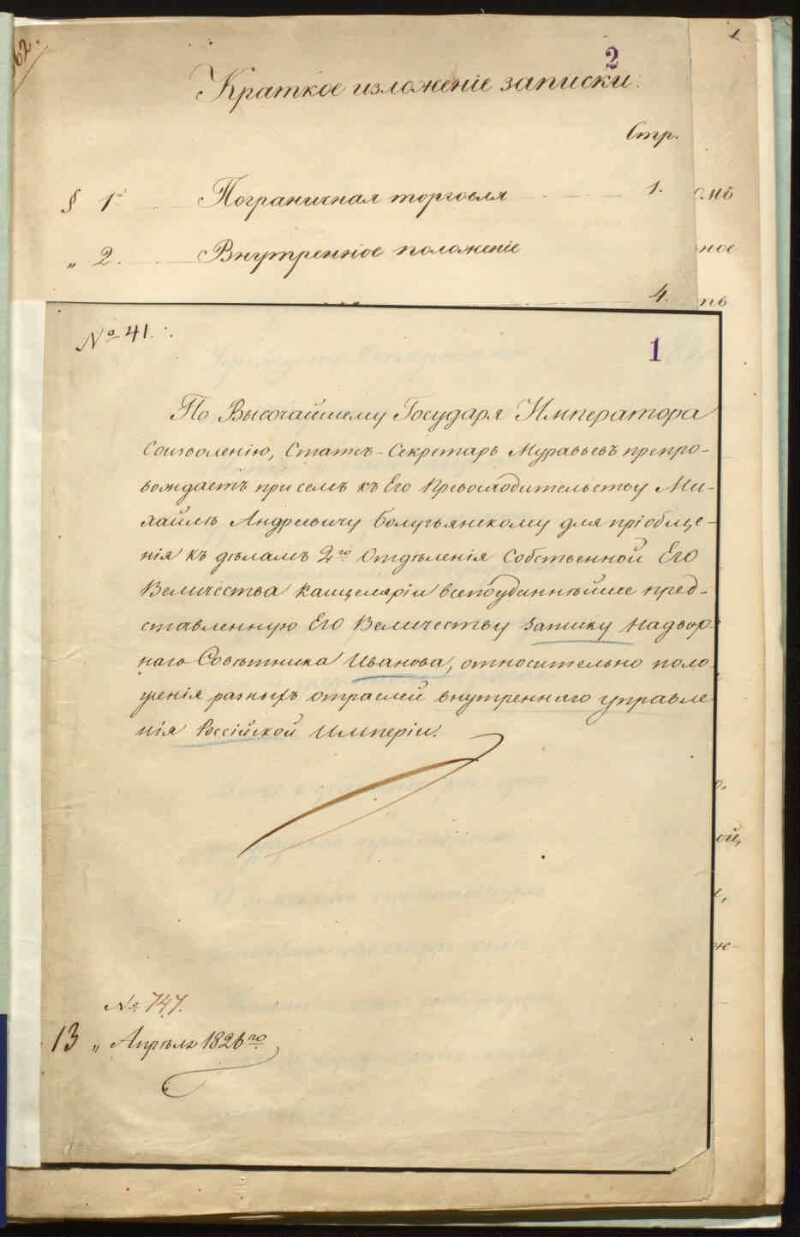 2
Краткое изложеніе записки.
Стр.
§ 1 Пограничная торговля 1.
„ 2. Внутренное положеніе
4.
№ 41.
1
По Высочайшему Государя Императора
Соизволенію, Статсъ-Секретарь Муравьевъ препро-
вождаетъ при семъ къ Его Превосходительству Ми-
хайлѣ Андреевичу Болугьянскому для пріобще-
нія къ дѣламъ 2го Отдѣленія Собственной Его
Величества Канцеляріи всеподданнѣйше пред-
ставленную Его Величеству Записку Надвор-
наго Совѣтника Иванова, относительно поло
женія разныхъ отраслей внутренняго управле
нія Россійской Имперіи.
№ 747.
13 „ Апрѣля 1826го